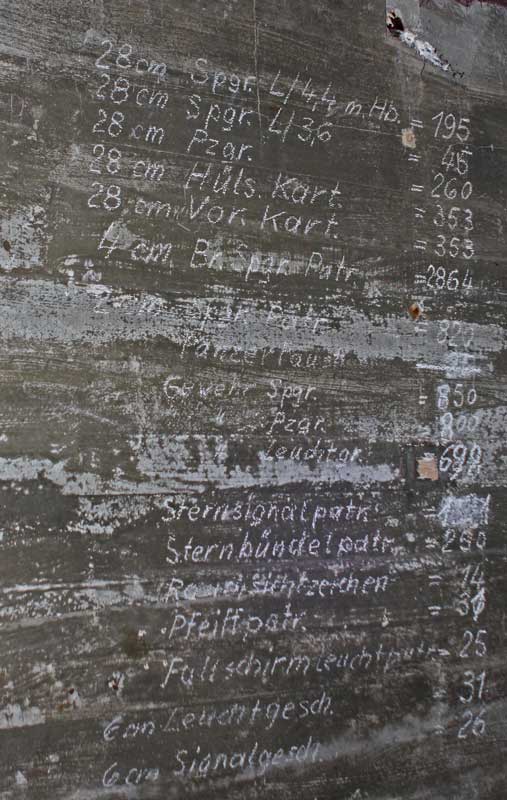 28 cm Spgr. L/4,4 m.Hb. = 195
28 cm Spgr. L/3,6 = 45
28 cm Pzgr. = 260
28 cm Hüls. Kart. = 353
28 cm Vor. Kart. = 353
4 cm Br. Spgr. Patr. = 2864
2 cm Patr. = 820
Gewehr Spgr. = 850
" Pzgr. = 800
" Leuchtgr. =
Sternsignalpatr. =
Sternbündelpatr. = 250
Rauchsichtzeichen = 14
Pfeifpatr. =
Fallschirmleuchtpatr. = 25
6 cm Leuchtgesch. = 31
6 cm Signalgesch. = 26